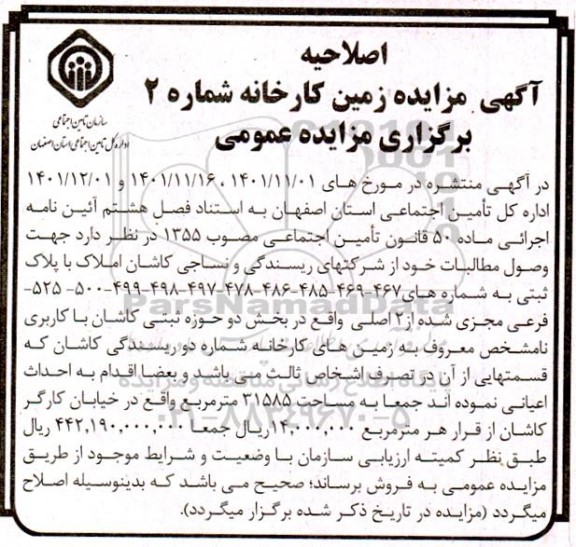 اصلاحیه
آگهی مزایده زمین کارخانه شماره ۲
برگزاری مزایده عمومی
سازمان تامین اجتماعی
اداره کل تامین اجتماعی استان اصفهان
در آگهی منتشره در مورخ های ۱۴۰۱/۱۱/۰۱ ، ۱۴۰۱/۱۱/۱۶ و ۱۴۰۱/۱۲/۰۱
اداره کل تأمین اجتماعی استان اصفهان به استناد فصل هشتم آئین نامه
اجرائی ماده ۵۰ قانون تأمین اجتماعی مصوب ۱۳۵۵ در نظر دارد جهت
وصول مطالبات خود از شرکتهای ریسندگی و نساجی کاشان املاک با پلاک
ثبتی به شماره های ۴۶۷-۴۶۹-۴۸۵-۴۸۶-۴۷۸-۴۹۷-۴۹۸-۴۹۹-۵۰۰-۵۲۵-
فرعی مجزی شده از ۲ اصلی واقع در بخش دو حوزه ثبتی کاشان با کاربری
نامشخص معروف به زمین های کارخانه شماره دو ریسندگی کاشان که
قسمتهایی از آن در تصرف اشخاص ثالث می باشد و بعضا اقدام به احداث
اعیانی نموده اند جمعا به مساحت ۳۱۵۸۵ مترمربع واقع در خیابان کارگر
کاشان از قرار هر مترمربع ۱۴,۰۰۰,۰۰۰ ریال جمعا ۴۴۲,۱۹۰,۰۰۰,۰۰۰ ریال
طبق نظر کمیته ارزیابی سازمان با وضعیت و شرایط موجود از طریق
مزایده عمومی به فروش برساند؛ صحیح می باشد که بدینوسیله اصلاح
میگردد (مزایده در تاریخ ذکر شده برگزار میگردد).
ParsNamadData
پایگاه اطلاع رسانی مناقصه و مزایده
۰۲۱-۸۸۳۴۹۶۷۰-۵